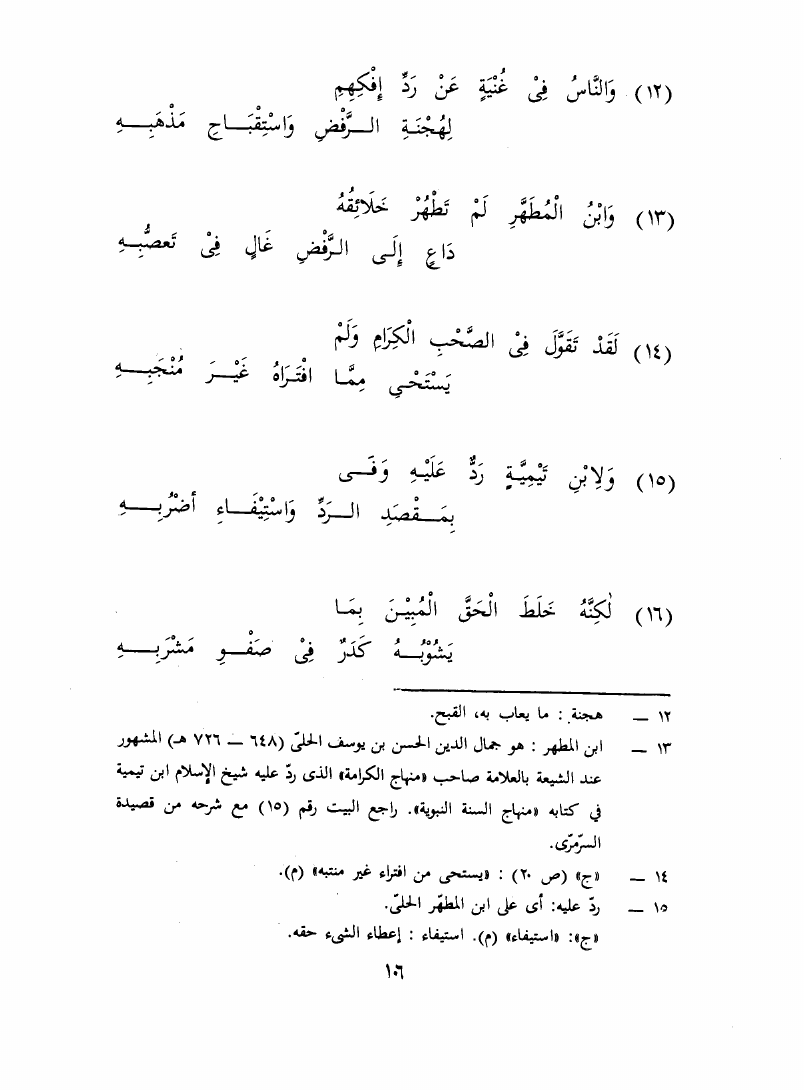 (١٢) وَالنَّاسُ فِىْ غُنْيَةٍ عَنْ رَدِّ إِفْكِهِمِ
لِهُجْنَةِ الرَّفْضِ وَاسْتِقْبَاحِ مَذْهَبِهِ
(١٣) وَابْنُ الْمُطَهَّرِ لَمْ تَطْهُرْ خَلَائِقُهُ
دَاعٍ إِلَى الرَّفْضِ غَالٍ فِىْ تَعصُّبِهِ
(١٤) لَقَدْ تَقَوَّلَ فِىْ الصَّحْبِ الْكِرَامِ وَلَمْ
يَسْتَحْىِ مِمَّا افْتَرَاهُ غَيْرَ مُنْجَبِهِ
(١٥) وَلِابْنِ تَيْمِيَّةٍ رَدٌّ عَلَيْهِ وَفَى
بِمَقْصَدِ الرَّدِّ وَاسْتِيْفَاءِ أضْرُبِهِ
(١٦) لٰكِنَّهُ خَلَطَ الْحَقَّ الْمُبِيْنَ بِمَا
يَشُوْبُهُ كَدَرٌ فِىْ صَفْوِ مَشْرَبِهِ
١٢ ــ هجنة : ما يعاب به، القبح.
١٣ ــ ابن المطهر : هو جمال الدين الحسن بن يوسف الحلىّ (٦٤٨ ــ ٧٢٦ هـ) المشهور
عند الشيعة بالعلامة صاحب «منهاج الكرامة» الذى ردّ عليه شيخ الإسلام ابن تيمية
في كتابه «منهاج السنة النبوية». راجع البيت رقم (١٥) مع شرحه من قصيدة
السرّمرّى.
١٤ ــ «ج» (ص ٢٠) : «يستحى من افتراء غير منتبه» (م).
١٥ ــ ردّ عليه: أى على ابن المطهّر الحلىّ.
«ج»: «استيفاء» (م). استيفاء : إعطاء الشىء حقه.
١٠٦